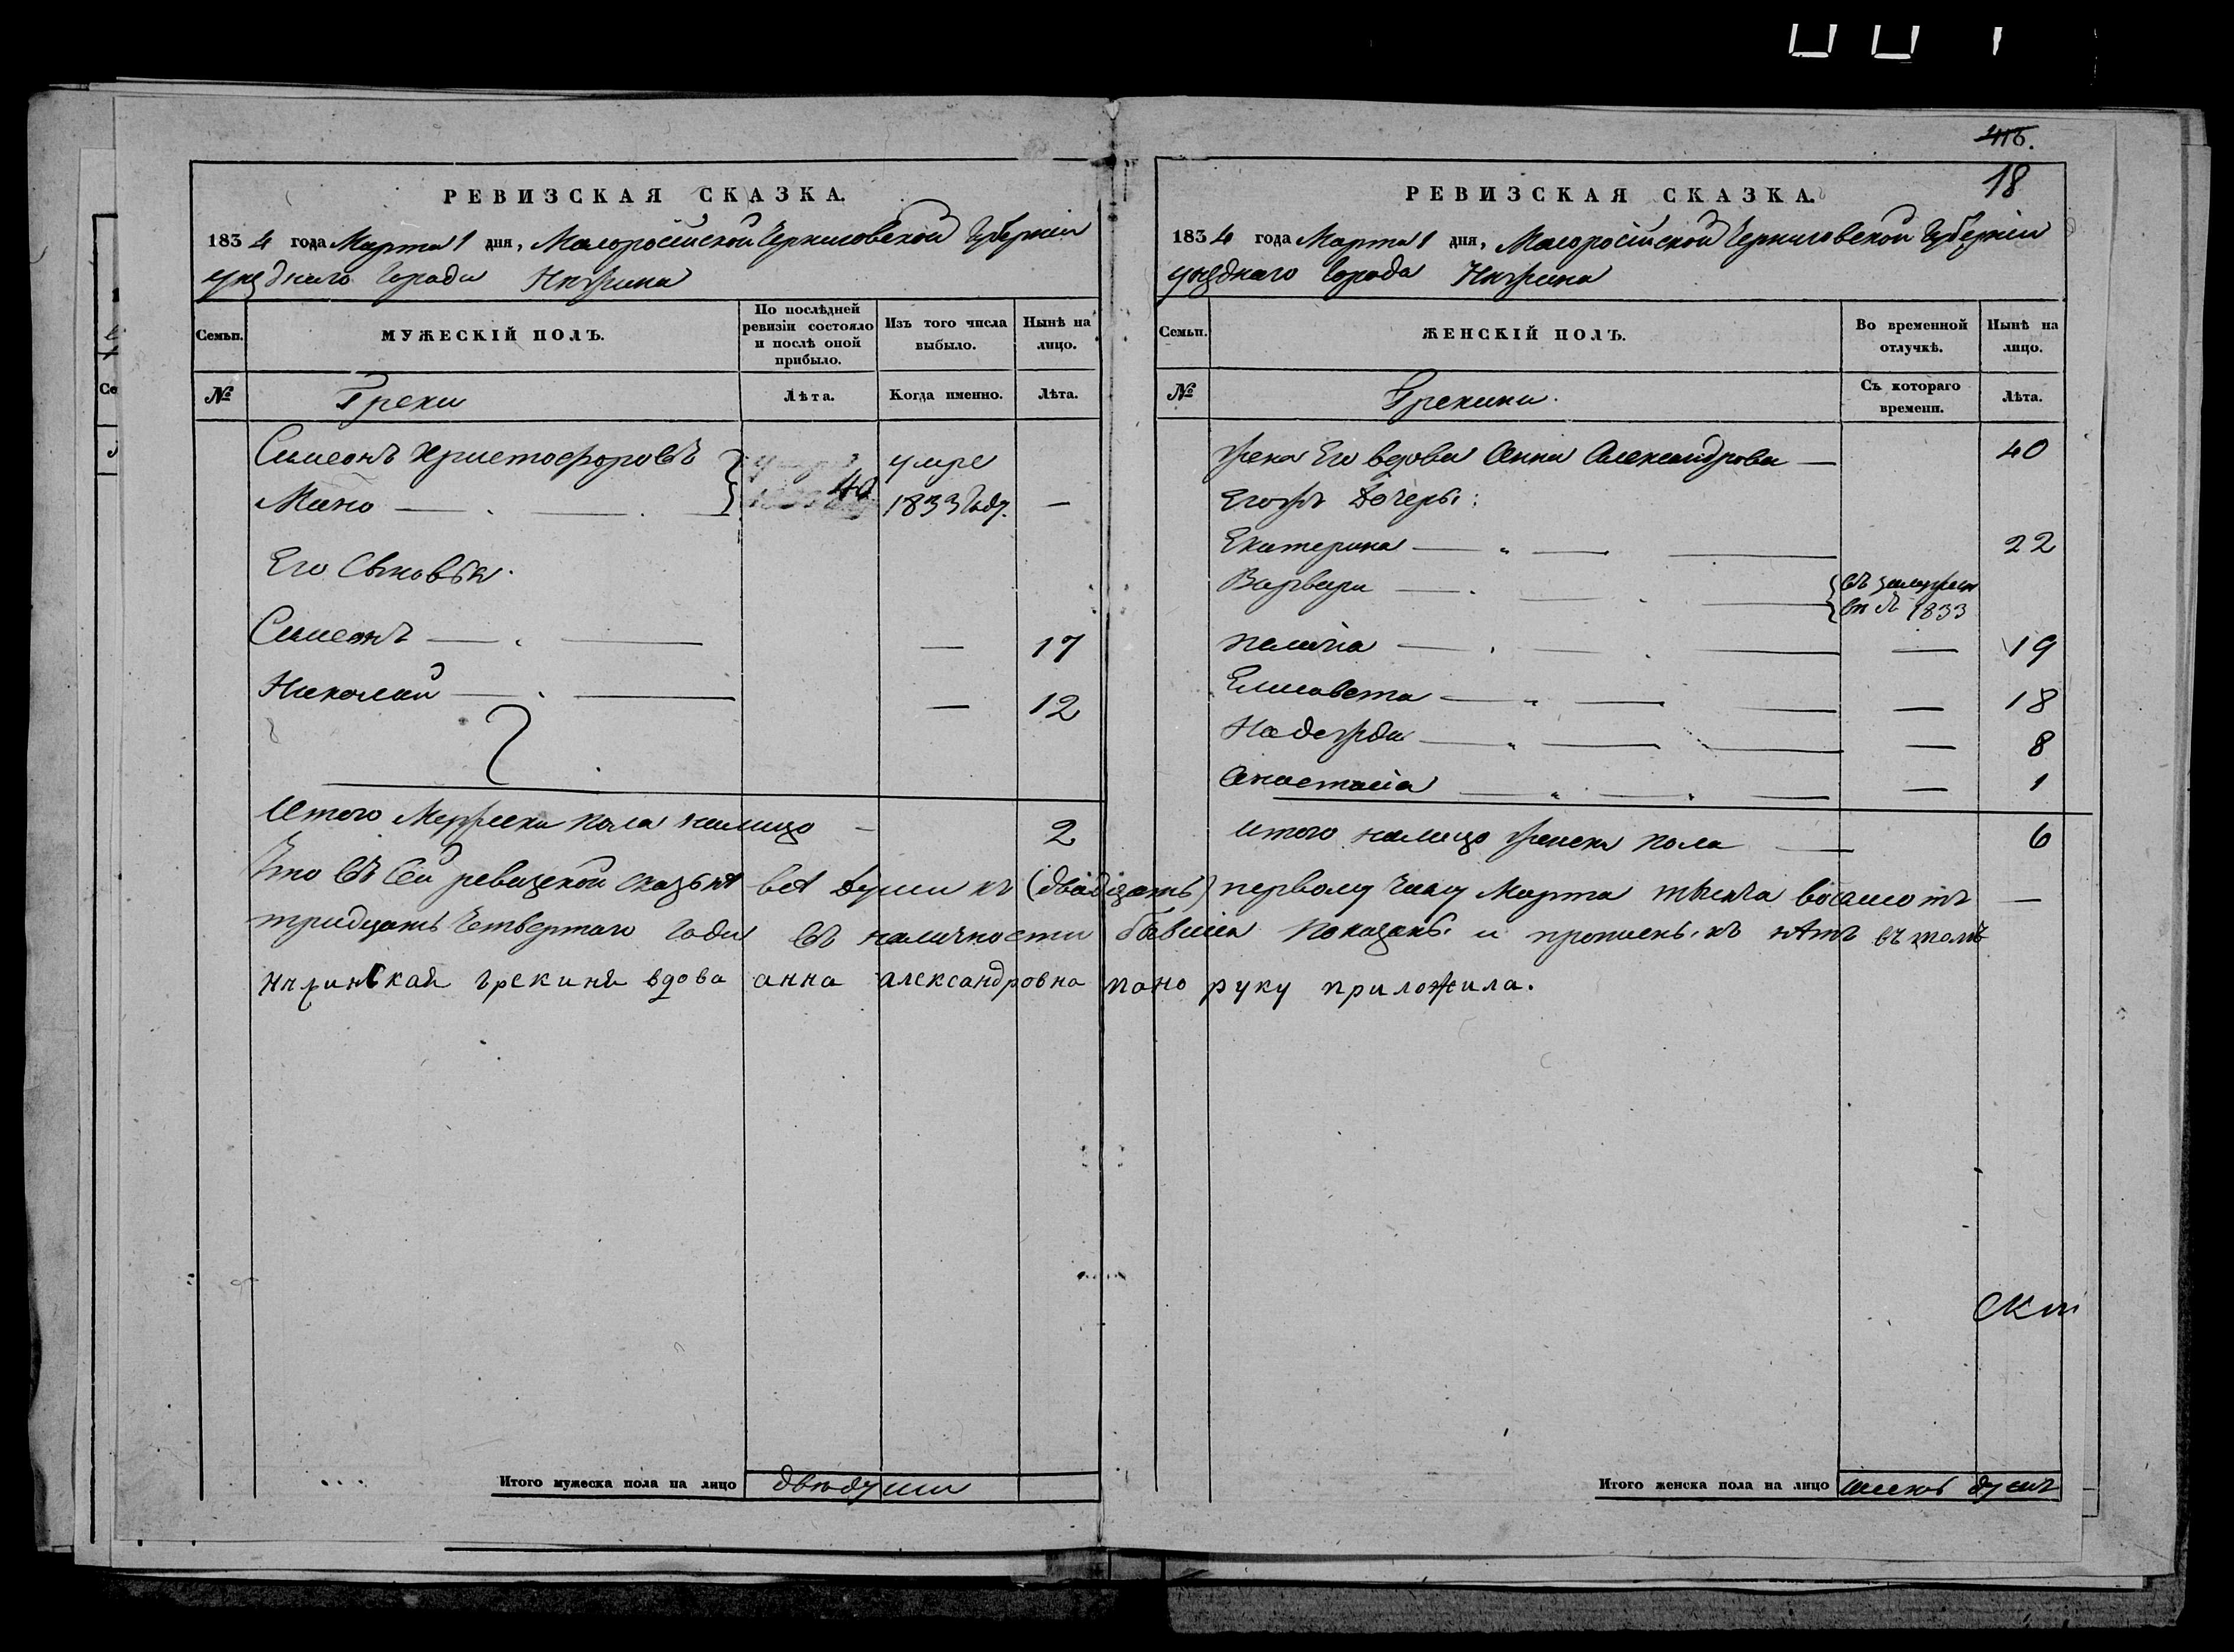 416.
18
РЕВИЗСКАЯ СКАЗКА.
1834 года Марта 1 дня, Малоросiйской Черниговской Губернiи
уѣзднаго Города Нѣжина
Семьи. МУЖЕСКІЙ ПОЛЪ. По послѣдней ревизіи состояло и послѣ оной прибыло. Изъ того числа выбыло. Нынѣ на лицо.
№ Греки Лѣта. Когда именно. Лѣта.
Симеонъ Христофоровъ умре
Мано — 40 1833 Году. —
Его Сыновья.
Симеонъ — — 17
Николай — — 12
Итого Мужеска пола налицо — 2
РЕВИЗСКАЯ СКАЗКА.
1834 года Марта 1 дня, Малоросiйской Черниговской Губернiи
уѣзднаго Города Нѣжина
Семьи. ЖЕНСКІЙ ПОЛЪ. Во временной отлучкѣ. Нынѣ на лицо.
№ Грекини. Съ котораго времени. Лѣта.
Его вдова Анна Александрова — 40
Егожъ Дочеры:
Екатерина — 22
Варвара — въ замужест
1833
— — 19
Елисавета — — 18
Надежда — — 8
Анастасiа — — 1
итого налицо женска пола — 6
Что въ Сей ревизской сказькѣ всѣ Души къ (двадцать) первому числу Марта
тридцать Четвертаго Года въ наличности бывшiя показаны и прописных нѣтъ въ томъ
Нѣжинская грекиня вдова анна александровна мано руку приложила.
Итого мужеска пола на лицо двѣ души
Итого женска пола на лицо шесть душъ